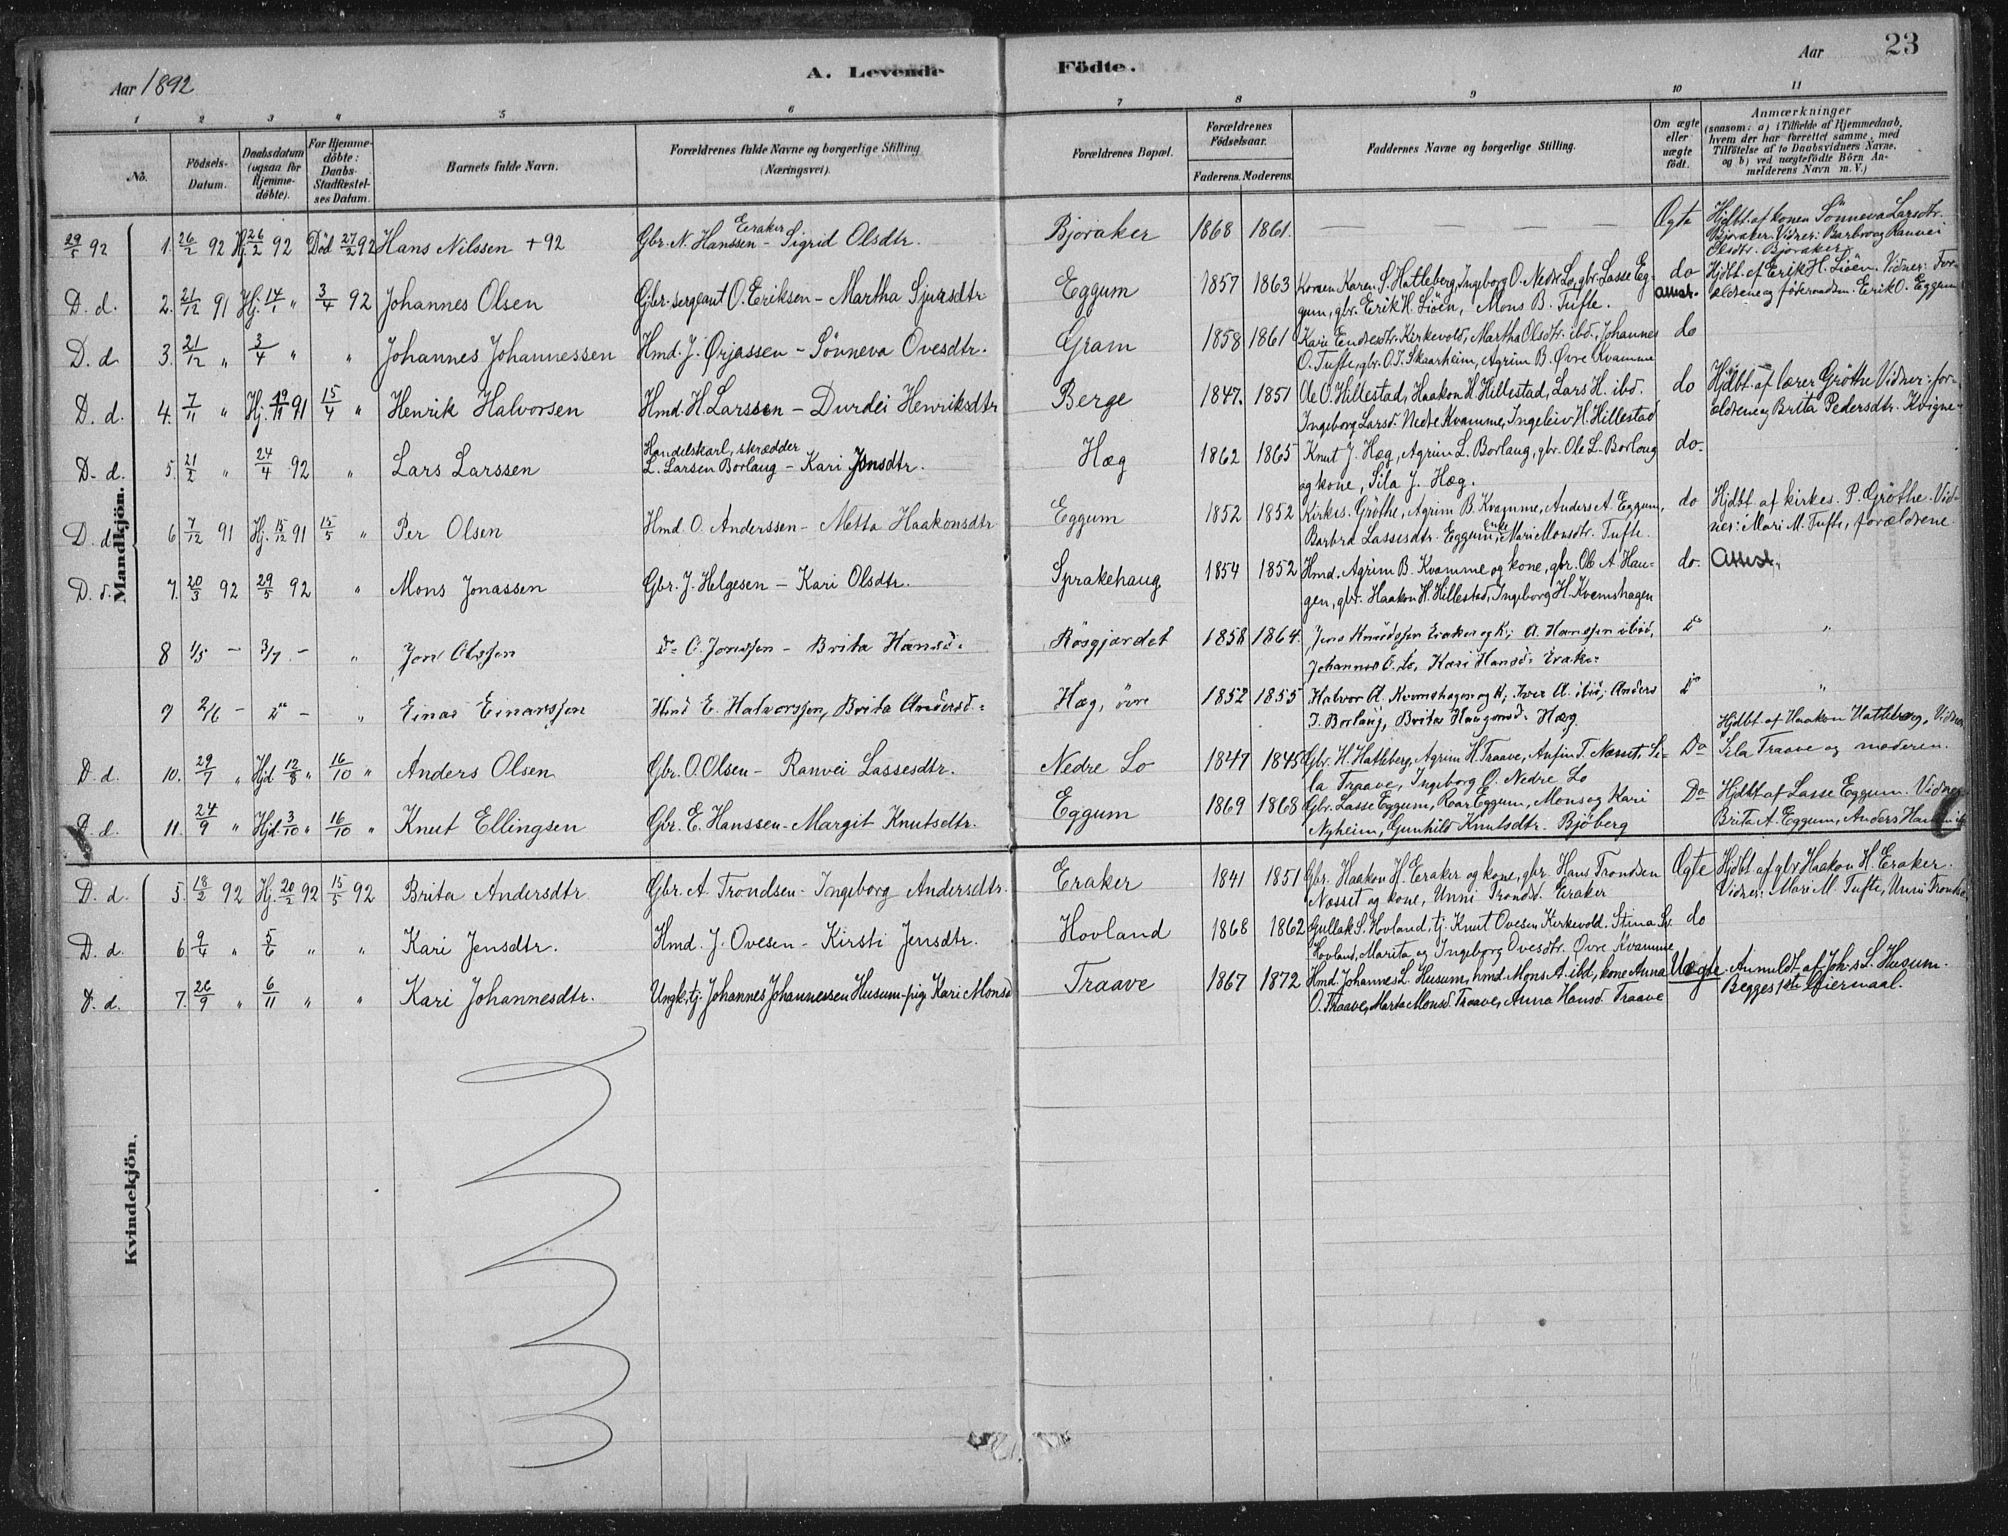 Aar 1892
A. Levende
Födte.
Aar
23
1 2 3 4 5 6 7 8 9 10 11
No.
Födsels-Datum.
Daabsdatum (ogsaa for Hjemmedöbte).
For Hjemmedöbte: Daabs-Stadfæstelses Datum.
Barnets fulde Navn.
Forældrenes fulde Navne og borgerlige Stilling (Næringsvei).
Forældrenes Bopæl.
Forældrenes Födselsaar.
Faderens. Moderens.
Faddernes Navne og borgerlige Stilling.
Om ægte eller uægte födt.
Anmærkninger (saasom: a) i Tilfælde af Hjemmedaab, hvem der har forrettet samme, med Tilföielse af to Daabsvidners Navne, og b) ved uægtefödte Börn Anmelderens Navn m. V.)
Mandkjön.
29/5 92 1. 26/2 92 Hj. 26/2 92 Död 27/2 92 Hans Nilssen + 92 Gbr. N. Hanssen Eraker - Sigrid Olsdtr. Bjøraker 1868 1861. — — — — — Ægte Hjdbt. af konen Sönneva Larsdtr. Bjøraker. Vidner: Barbro og Ranvei Olsdtr. Bjøraker
D. d. 2. 21/12 91 Hj. 14/1 " 3/4 92 Johannes Olsen Gbr. sergeant O. Eriksen - Martha Sjursdtr Eggum 1857 1863 Konen Karen S. Hatleberg, Ingeborg O. Nedre Lo, gbr. Lasse Eggum, gbr. Erik H. Liöen, Mons B. Tufte. do attest. Hjdbt. af Erik H. Liöen. Vidner: Forældrene og föderaadsm. Erik O. Eggum
D. d 3. 21/12 " 3/4 " " Johannes Johannessen Hmd. J. Ørjassen - Sönneva Ovesdtr. Gram 1858 1861 Kari Endresdtr. Kirkevold, Martha Olsdtr. ibd., Johannes O. Tufte, gbr. O. J. Skaarheim, Agrim B. Øvre Kvamme do
D. d. 4. 7/11 " Hj. 19/11 91 15/4 " Henrik Halvorsen Hmd. H. Larssen - Durdei Henriksdtr Berge 1847. 1851 Ole O. Hillestad, Haakon H. Hillestad, Lars H. ibd. Ingeborg Larsd. Nedre Kvamme, Ingeleiv H. Hillestad do Hjdbt. af lærer Gröthe Vidner: forældrene og Brita Pedersdtr. Kvigne
D. d. 5. 21/2 " 24/4 92 " Lars Larssen Handelskarl, skrædder L. Larsen Borlaug - Kari Jonsdtr. Hæg 1862 1865 Knut J. Hæg, Agrim L. Borlaug, gbr. Ole L. Borlaug og kone, Sila J. Hæg. do.
D. d. 6 7/12 91 Hj. 15/12 91 15/5 " Per Olsen Hmd. O. Anderssen - Metta Haakonsdtr Eggum 1852 1852 Kirkes. Gröthe, Agrim B. Kvamme, Anders A. Eggum, Barbra Lassesdtr. Eggum, enke Mari Monsdtr. Tufte. do Hjdbt af kirkes. P. Gröthe. Vidner: Mari M. Tufte, forældrene
D. d. 7. 20/3 92 29/5 92 " Mons Jonassen Gbr. J. Helgesen - Kari Olsdtr. Sprakehaug 1854 1852 Hmd. Agrim B. Kvamme og kone, gbr. Ole A Haugen, gbr. Haakon H. Hillestad, Ingeborg H. Kvemshagen do. Attest.
8 1/5 - 3/7 - " Jon Olssen do O. Jonssen - Brita Hansd. Rösgjærdet 1858 1864. Jens Knudssen Eraker og K; A. Hanssen ibid, Johannes O. Lo, Kari Hansd. Eraker do "
9 2/6 - do - " Einar Einarssen Hmd E. Halvorssen, Brita Andersd. Hæg, övre 1852 1855 Halvor A. Kvemshagen og K; Iver A. ibid; Anders J. Borlaug, Brita Haagensd. Hæg do "
D. d. 10. 29/7 " Hjd 12/8 " 16/10 " Anders Olsen Gbr. O. Olsen - Ranvei Lassesdtr. Nedre Lo 1847 1845 Gbr. H. Hatleberg, Agrim H. Traave, Anfin T. Næsset, Sila Traave, Ingeborg O. Nedre Lo Do Hjdbt. af Haakon Hatleberg, Vidner Sila Traave og moderen.
D. d. 11. 24/9 " Hjd. 3/10 " 16/10 " Knut Ellingsen Gbr. E. Hanssen - Margit Knutsdtr. Eggum 1869 1868 Gbr. Lasse Eggum, Roar Eggum, Mons og Kari Nyheim, Gunhild Knutsdtr. Bjöberg Do Hjdbt af Lasse Eggum. Vidner Brita A. Eggum, Anders
Kvindekjön.
D. d. 5. 18/2 92 Hj. 20/2 92 15/5 92 Brita Andersdtr Gbr. A. Trondsen - Ingeborg Andersdtr. Eraker 1841 1851 Gbr. Haakon H. Eraker og kone, gbr. Hans Trondsen Næsset og kone, Unni Trondsd. Eraker Ægte Hjdbt af gbr Haakon H. Eraker. Vidner: Mari M. Tufte, Unni Trondsd
D. d. 6 9/4 " 5/6 " " Kari Jensdtr. Hmd. J. Ovesen - Kirsti Jensdtr. Hovland 1868 1862 Gullak S. Hovland, tj. Knut Ovesen Kirkevold. Stina S. Hovland, Marita og Ingeborg Ovesdtr. Øvre Kvamme do
D. d. 7. 26/9 " 6/11 " " Kari Johannesdtr. Ungk. tj. Johannes Johannessen Husum - pige Kari Monsd Traave 1867 1872 Hmd. Johannes L. Husum, hmd. Mons A. ibd, kone Anna O. Traave, Marta Monsd. Traave, Anna Hansd. Traave Uægte. Anmeldt af Johs L. Husum. Begges 1ste leiermaal.